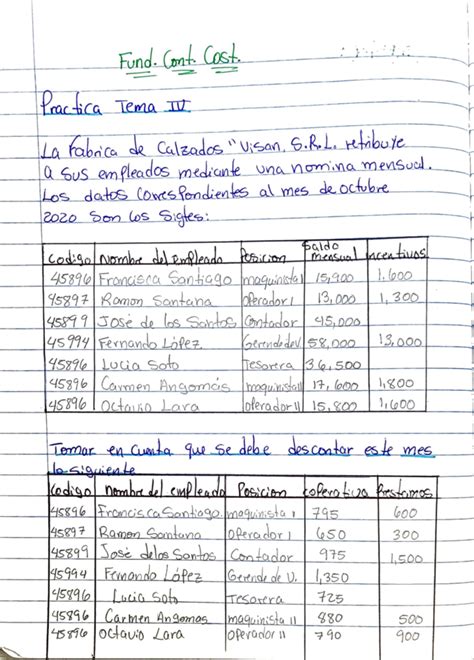 Fund. Cont. Cost.
Practica Tema IV
La Fabrica de Calzados "Visan, S.R.L. retribuye
a sus empleados mediante una nomina mensual.
Los datos correspondientes al mes de octubre
2020 Son los Sigtes:
Codigo Nombre del Empleado Posicion Saldo mensual Incentivos
45896 Francisca Santiago maquinista I 15,900 1,600
45897 Ramon Santana operador I 13,000 1,300
45899 José de los Santos Contador 45,000
45994 Fernando López Gerende dev 58,000 13,000
45896 Lucia Soto Tesorera 36,500
45896 Carmen Angomás maquinista II 17,600 1,800
45896 Octavio Lara operador II 15,800 1,600
Tomar en cuenta que se debe descontar este mes
lo siguiente
Codigo nombre del empleado Posicion coperativa Prestamos
45896 Francisca Santiago maquinista I 795 600
45897 Ramon Santana operador I 650 300
45899 José delos Santos Contador 975 1,500
45994 Fernando López Gerende de V. 1,350
45896 Lucia Soto Tesorera 725
45896 Carmen Angomas maquinista II 880 500
45896 octavio Lara operador II 790 900